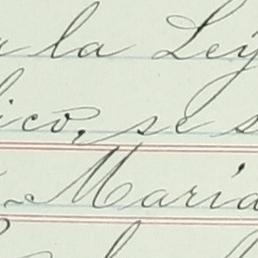 a la Ley
ico, se s
Maria